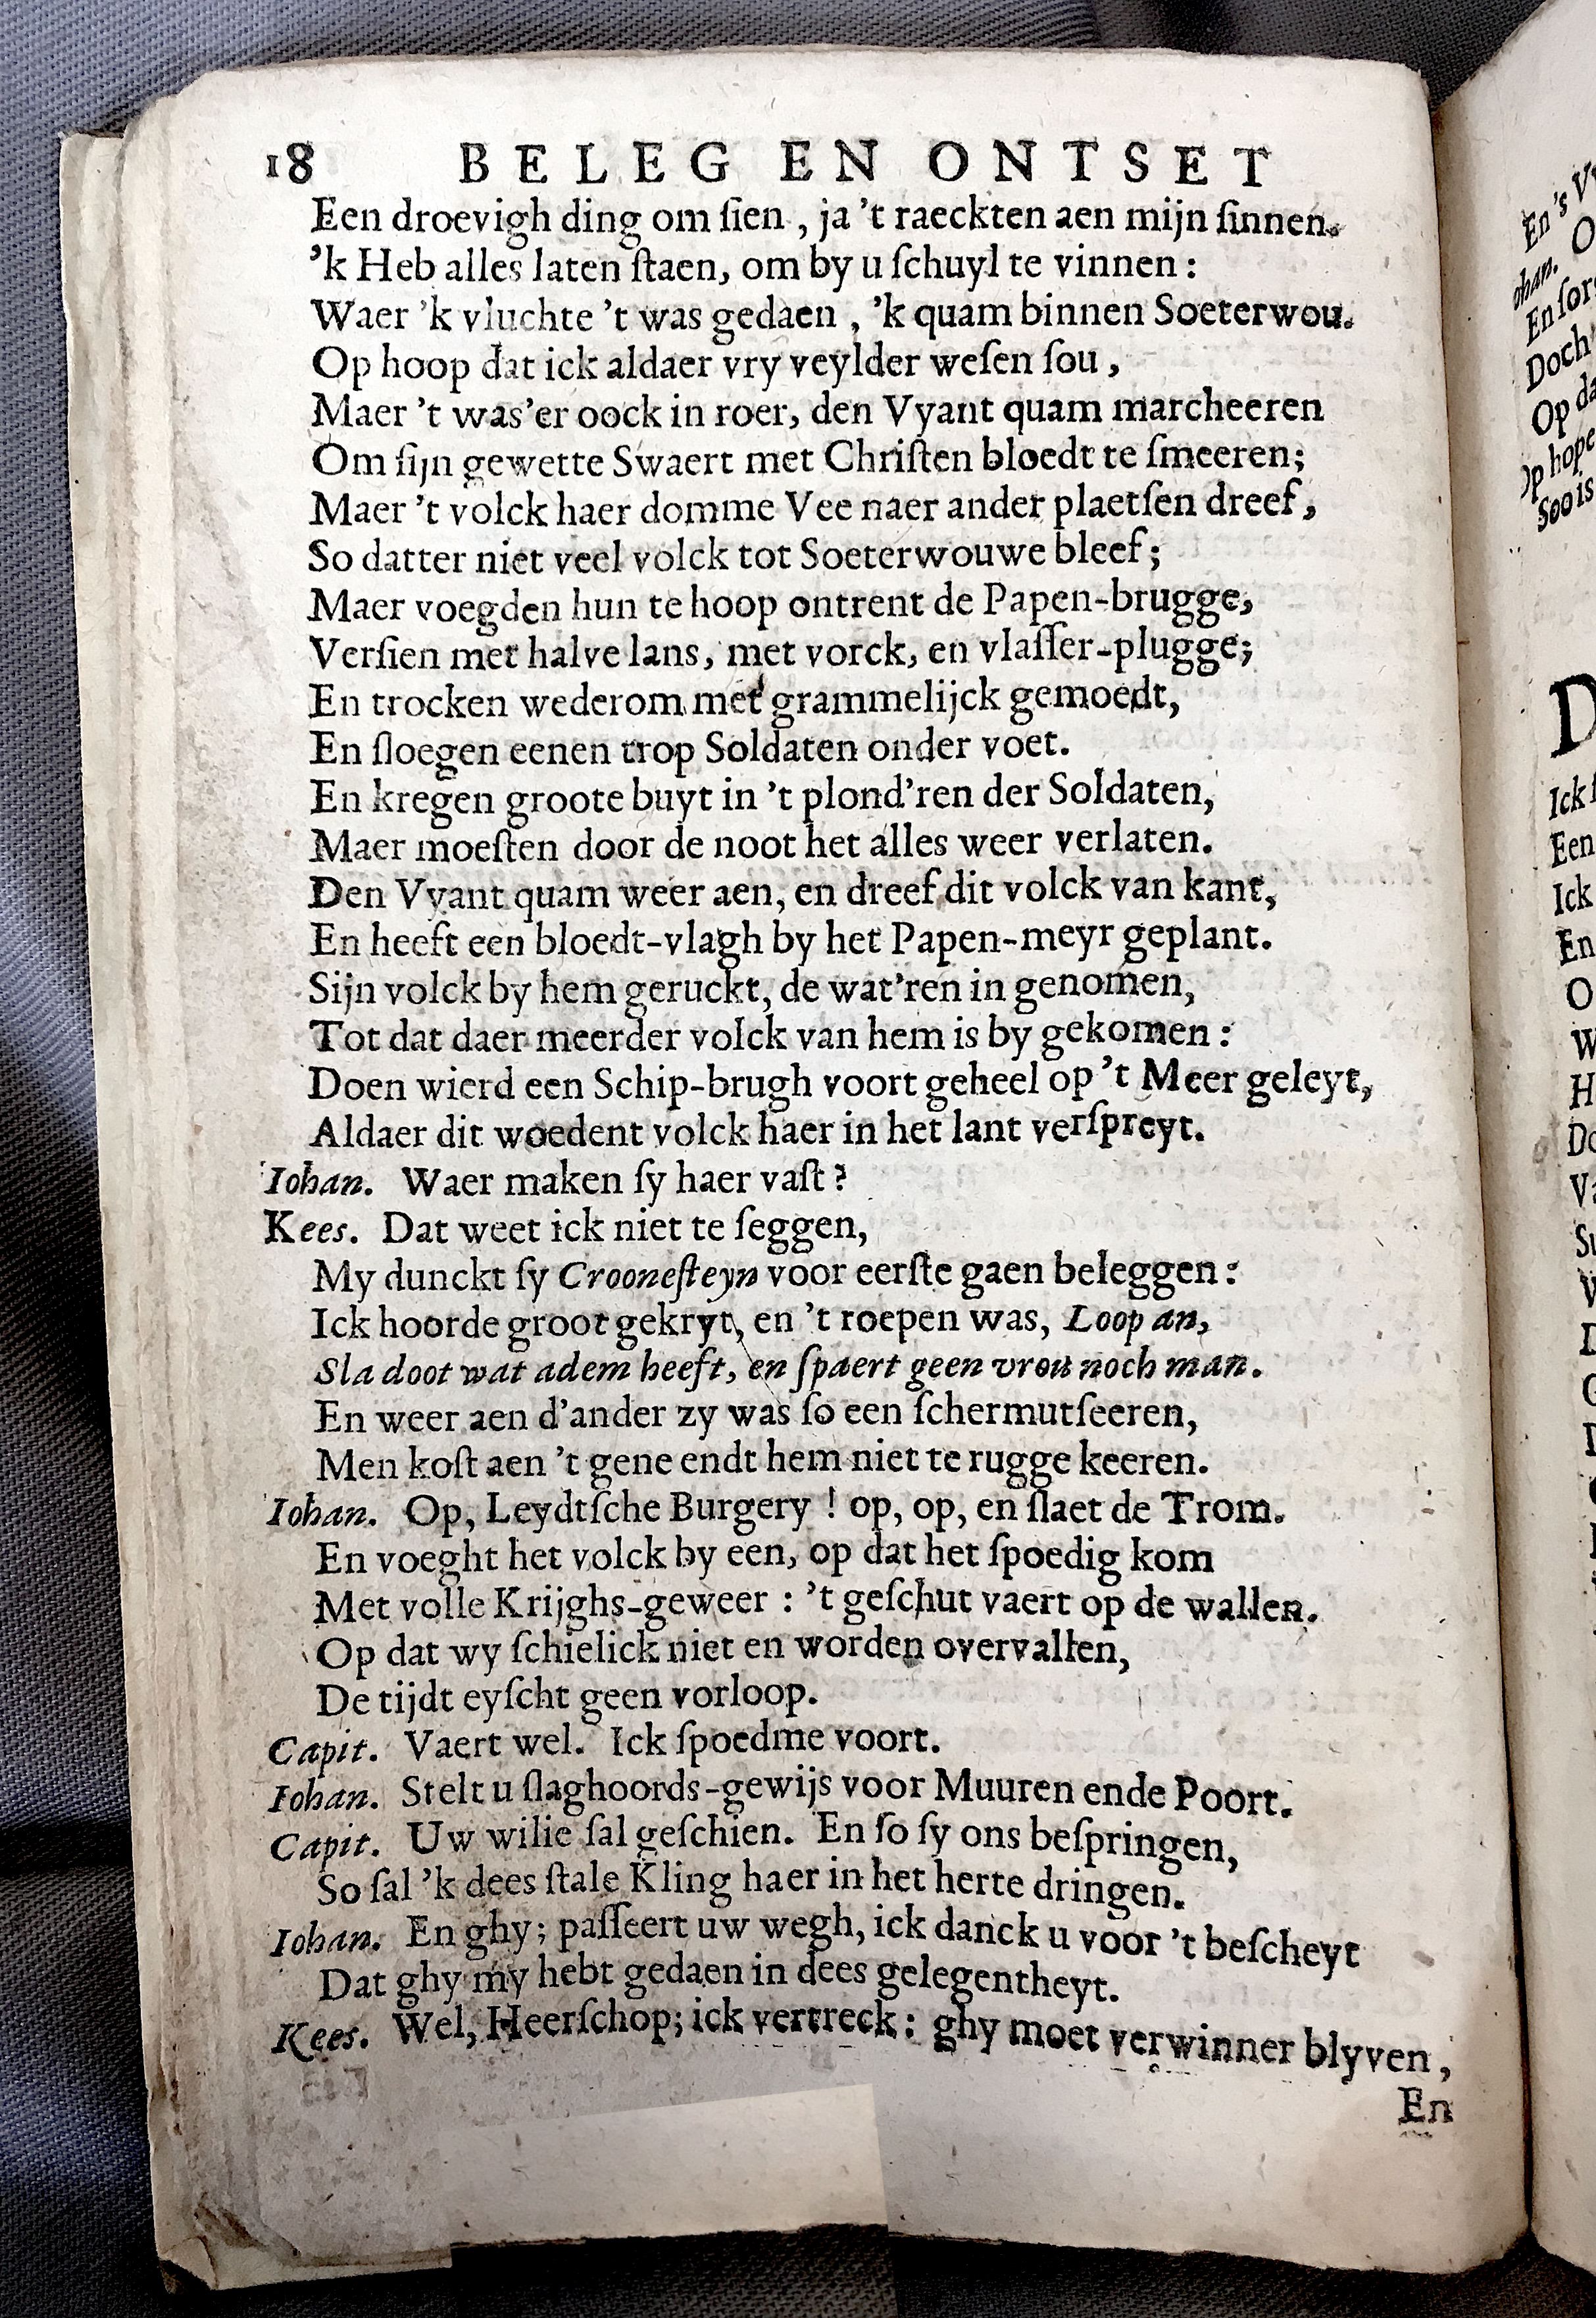 18 BELEG EN ONTSET
Een droevigh ding om ſien , ja 't raeckten aen mijn ſinnen.
'k Heb alles laten ſtaen, om by u ſchuyl te vinnen :
Waer 'k vluchte 't was gedaen , 'k quam binnen Soeterwou.
Op hoop dat ick aldaer vry veylder weſen ſou ,
Maer 't was'er oock in roer, den Vyant quam marcheeren
Om ſijn gewette Swaert met Chriſten bloedt te ſmeeren;
Maer 't volck haer domme Vee naer ander plaetſen dreef ,
So datter niet veel volck tot Soeterwouwe bleef ;
Maer voegden hun te hoop ontrent de Papen-brugge,
Verſien met halve lans, met vorck, en vlaſſer-plugge;
En trocken wederom met grammelijck gemoedt,
En ſloegen eenen trop Soldaten onder voet.
En kregen groote buyt in 't plond'ren der Soldaten,
Maer moeſten door de noot het alles weer verlaten.
Den Vyant quam weer aen, en dreef dit volck van kant,
En heeft een bloedt-vlagh by het Papen-meyr geplant.
Sijn volck by hem geruckt, de wat'ren in genomen,
Tot dat daer meerder volck van hem is by gekomen :
Doen wierd een Schip-brugh voort geheel op 't Meer geleyt,
Aldaer dit woedent volck haer in het lant verſpreyt.
Iohan. Waer maken ſy haer vaſt ?
Kees. Dat weet ick niet te ſeggen,
My dunckt ſy Crooneſteyn voor eerſte gaen beleggen :
Ick hoorde groot gekryt, en 't roepen was, Loop an,
Sla doot wat adem heeft, en ſpaert geen vrou noch man.
En weer aen d'ander zy was ſo een ſchermutſeeren,
Men koſt aen 't gene endt hem niet te rugge keeren.
Iohan. Op, Leydtſche Burgery ! op, op, en ſlaet de Trom.
En voeght het volck by een, op dat het ſpoedig kom
Met volle Krijghs-geweer : 't geſchut vaert op de wallen.
Op dat wy ſchielick niet en worden overvallen,
De tijdt eyſcht geen vorloop.
Capit. Vaert wel. Ick ſpoedme voort.
Iohan. Stelt u ſlaghoords-gewijs voor Muuren ende Poort.
Capit. Uw wilie ſal geſchien. En ſo ſy ons beſpringen,
So ſal 'k dees ſtale Kling haer in het herte dringen.
Iohan. En ghy; paſſeert uw wegh, ick danck u voor 't beſcheyt
Dat ghy my hebt gedaen in dees gelegentheyt.
Kees. Wel, Heerſchop; ick vertreck : ghy moet verwinner blyven ,
En